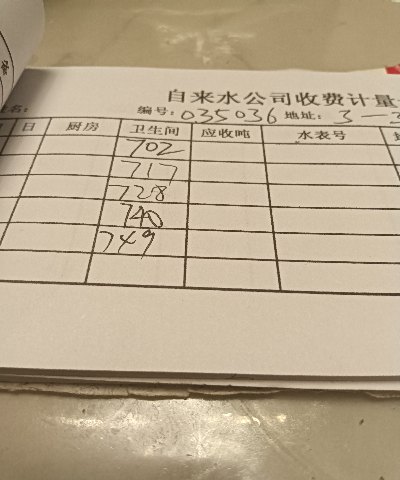 自来水公司收费计量
名: 编号: 035036 地址: 3-
日 厨房 卫生间 应收吨 水表号
702
717
728
740
749